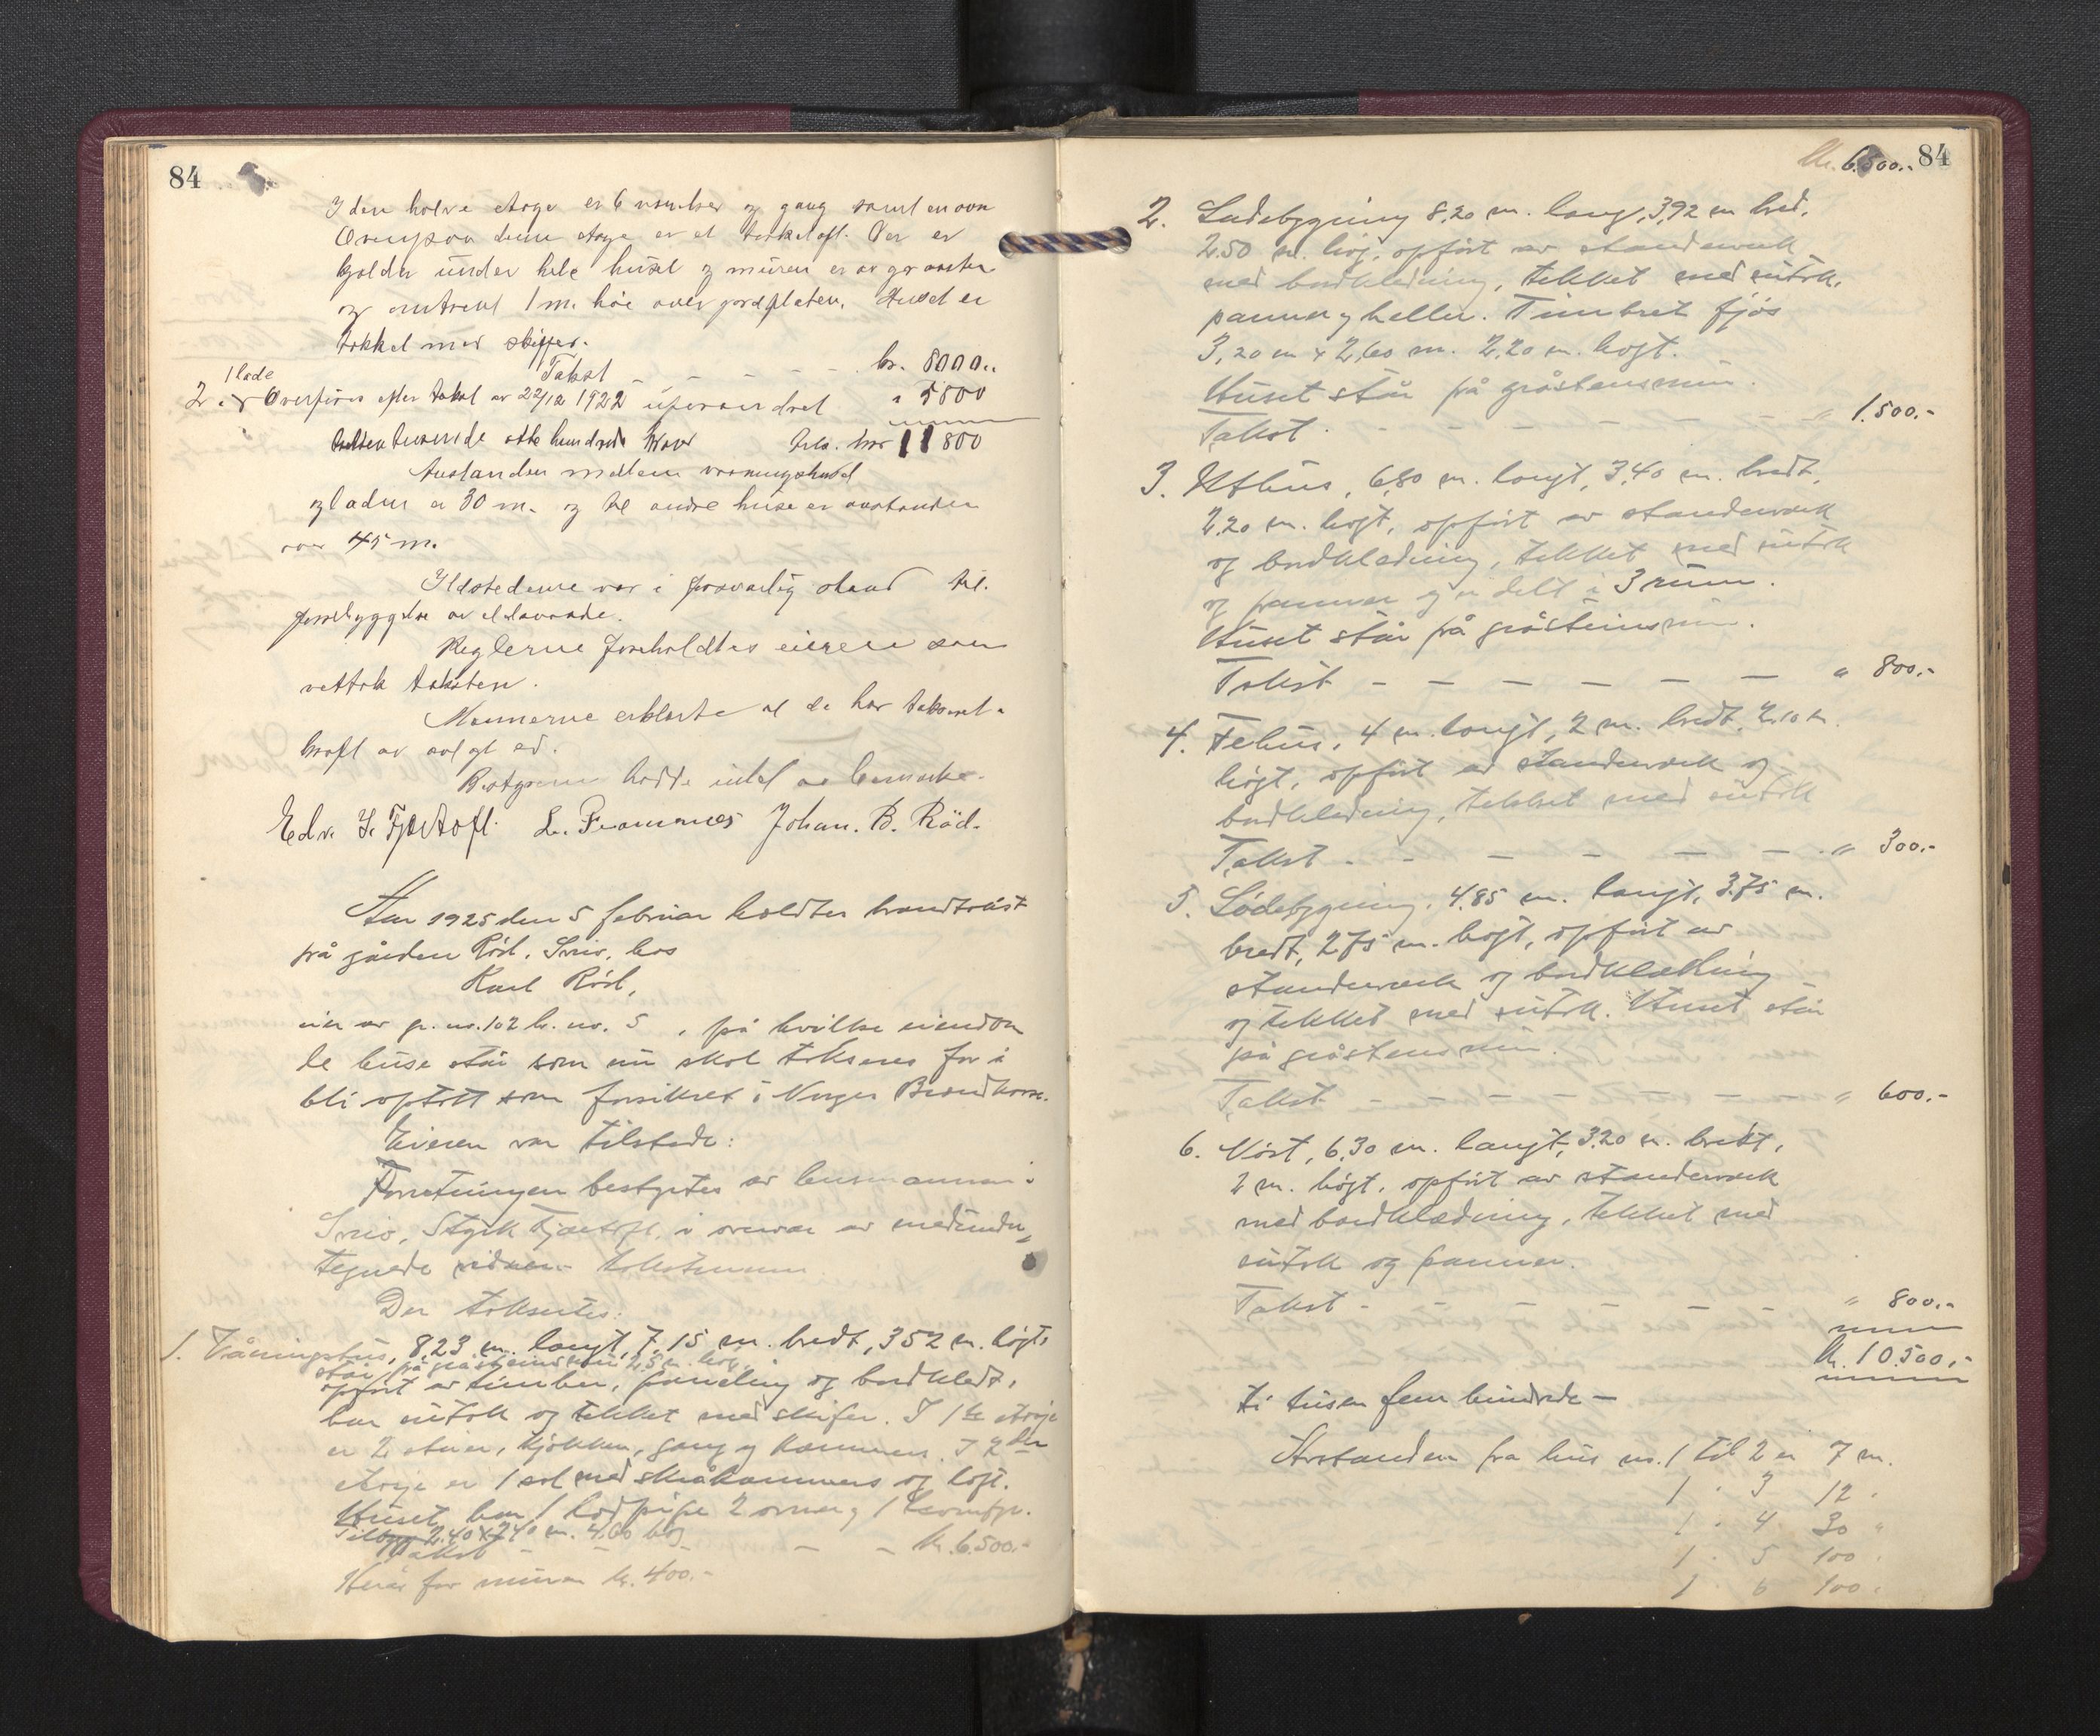 84
I den halve etage er 6 værelser og gang samt en ovn
Ovenpaa denne etage er et tørkeloft. Der er
kjelder under hele huset og muren er av graasten
og omtrent 1 m. høi over jordflaten. Huset er
tækket med skiffer.
Takst - - - - - kr. 8000..
1 lade
2. Overføres efter takst av 22/12 1922 uforandret " 3800
tusen otte hundrede kroner Tils. kr 11800
Avstanden mellem vaaningshuset
og laden er 30 m. og til andre huse er avstanden
over 45 m.
Ildstederne var i forsvarlig stand til
forebyggelse av ildsvaade.
Reglerne foreholdtes eieren som
vedtok taksten.
Mænnerne erklærte at de har taksert i
kraft av avlagt ed.
Bestyreren hadde intet at bemerke.
Edv. S. Fjørtoft. L. Frammes Johan. B. Röd.
Aar 1925 den 5 februar holdtes brandtakst
på gården Röd, Sviö, hos
Karl Röd,
eier av gr. no. 102 br. no. 5, på hvilke eiendom
de huse står som nu skal takseres for å
bli optatt som forsikret i Norges Brandkasse.
Eieren var tilstede:
Forretningen bestyrtes av lensmannen i
Sviö, Styrk Fjørtoft, i overvær av medunder=
tegnede vidner takstmenn
Der taksertes:
1. Våningshus, 8,23 m. langt, 7,15 m. bredt, 352 m. högt,
står på gråsteinsmur 2,5 m. hög,
opfört av timber, paneling og bordkledt,
har sutak og tekket med skifer. I 1ste etasje
er 2 stuer, kjökken, gang og kammers. I 2den
etasje er 1 sal med skråkammers og loft.
Huset har 1 lodpipe 2 ovner og 1 komfyr.
Tilbygg 2.40 x 240 m. 4.60 hög
Takst - - - - - kr. 6.500.-
Herav for muren kr. 400.-
kr. 6.500.- 84
2. Ladebygning 8,20 m. lang, 3,92 m bred,
2.50 m. høg, opfört av standerverk
med bordkledning, tekket med sutak,
panner og heller. Timbret fjös
3,20 m x 2,60 m. 2,20 m. högt.
Huset står på gråstensmur.
Takst. - - - - - " 1.500.-
3. Uthus, 6,80 m. langt, 3,40 m. bredt,
2.20 m. högt, opfört av standerverk
og bordklædning, tekket med sutak
og panner og er delt i 3 rum.
Huset står på gråsteinsmur.
Takst - - - - - - " 800.-
4. Fehus, 4 m. langt, 2 m. bredt, 2,10 m.
högt, opfört av standerverk og
bordkledning, tekket med sutak
Takst - - - - - - " 300.-
5. Lödebygning, 4.85 m. langt, 3.75 m.
bredt, 2.75 m. högt, opfört av
standerverk og bordklædning
og tekket med sutak. Huset står
på gråstensmur.
Takst - - - - - - " 600.-
6. Nöst, 6.30 m. langt, 3.20 m. bredt,
2 m. högt, opfört av standerverk
med bordklædning, tekket med
sutak og panner.
Takst - - - - - - " 800.-
kr. 10.500.-
ti tusen fem hundrede —
Avstanden fra hus no. 1 til 2 er 7 m.
1 " 3 12 "
1 " 4 30 "
1 " 5 100 "
1 " 6 100 "